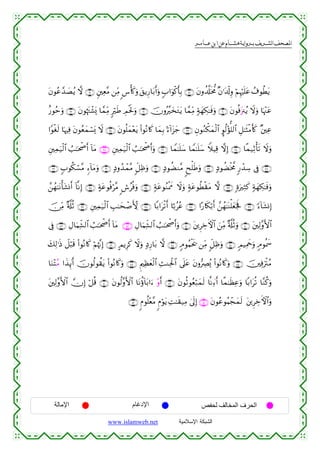 المصحف الشريف برواية هشام عن ابن عامر
يَطُوفُ عَلَيْهِمْ وِلْدَٰنٌ مُّخَلَّدُونَ ۝ بِأَكْوَابٍ وَأَبَارِيقَ وَكَأْسٍ مِّن مَّعِينٍ ۝ لَّا يُصَدَّعُونَ
عَنْهَا وَلَا يُنزَفُونَ ۝ وَفَٰكِهَةٍ مِّمَّا يَتَخَيَّرُونَ ۝ وَلَحْمِ طَيْرٍ مِّمَّا يَشْتَهُونَ ۝ وَحُورٌ
عِينٌ ۝ كَأَمْثَٰلِ ٱللُّؤْلُؤِ ٱلْمَكْنُونِ ۝ جَزَآءًۢ بِمَا كَانُوا۟ يَعْمَلُونَ ۝ لَا يَسْمَعُونَ فِيهَا لَغْوًا
وَلَا تَأْثِيمًا ۝ إِلَّا قِيلًا سَلَٰمًا سَلَٰمًا ۝ وَأَصْحَٰبُ ٱلْيَمِينِ مَآ أَصْحَٰبُ ٱلْيَمِينِ
۝ فِى سِدْرٍ مَّخْضُودٍ ۝ وَطَلْحٍ مَّنضُودٍ ۝ وَظِلٍّ مَّمْدُودٍ ۝ وَمَآءٍ مَّسْكُوبٍ ۝
وَفَٰكِهَةٍ كَثِيرَةٍ ۝ لَّا مَقْطُوعَةٍ وَلَا مَمْنُوعَةٍ ۝ وَفُرُشٍ مَّرْفُوعَةٍ ۝ إِنَّآ أَنشَأْنَٰهُنَّ
إِنشَآءً ۝ فَجَعَلْنَٰهُنَّ أَبْكَارًا ۝ عُرُبًا أَتْرَابًا ۝ لِّأَصْحَٰبِ ٱلْيَمِينِ ۝ ثُلَّةٌ مِّنَ
ٱلْأَوَّلِينَ ۝ وَثُلَّةٌ مِّنَ ٱلْءَاخِرِينَ ۝ وَأَصْحَٰبُ ٱلشِّمَالِ مَآ أَصْحَٰبُ ٱلشِّمَالِ ۝ فِى
سَمُومٍ وَحَمِيمٍ ۝ وَظِلٍّ مِّن يَحْمُومٍ ۝ لَّا بَارِدٍ وَلَا كَرِيمٍ ۝ إِنَّهُمْ كَانُوا۟ قَبْلَ ذَٰلِكَ
مُتْرَفِينَ ۝ وَكَانُوا۟ يُصِرُّونَ عَلَى ٱلْحِنثِ ٱلْعَظِيمِ ۝ وَكَانُوا۟ يَقُولُونَ أَئِذَا مُتْنَا
وَكُنَّا تُرَابًا وَعِظَٰمًا أَءِنَّا لَمَبْعُوثُونَ ۝ أَوْ ءَابَآؤُنَا ٱلْأَوَّلُونَ ۝ قُلْ إِنَّ ٱلْأَوَّلِينَ
وَٱلْءَاخِرِينَ ۝ لَمَجْمُوعُونَ إِلَىٰ مِيقَٰتِ يَوْمٍ مَّعْلُومٍ ۝
الحرف المخالف لحفص الإدغام الإمالة
الشبكة الإسلامية www.islamweb.net